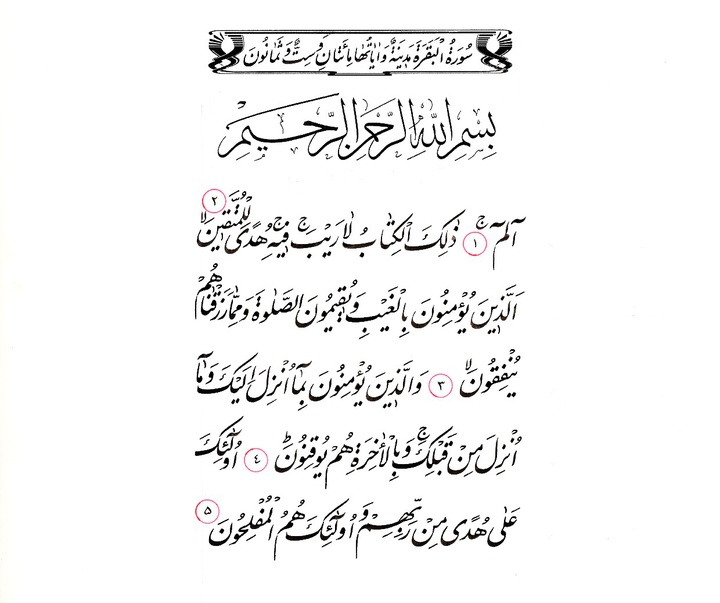 سُورَةُ الْبَقَرَةِ مَدَنِیَّةٌ وَ اٰیٰاتُهٰا مِائَتٰانِ وَ سِتٌّ وَ ثَمٰانُونَ
بِسْمِ اللّٰهِ الرَّحْمٰنِ الرَّحِیمِ
آلمٓ ۚ ۱ ذٰلِكَ الْكِتٰابُ لاٰ رَیْبَ ۚ فِیهِ ۚ هُدًی لِلْمُتَّقِینَ ۙ ۲
اَلَّذِینَ یُؤْمِنُونَ بِالْغَیْبِ وَ یُقِیمُونَ الصَّلٰوةَ وَ مِمّٰا رَزَقْنٰاهُمْ
یُنْفِقُونَ ۙ ۳ وَ الَّذِینَ یُؤْمِنُونَ بِمٰٓا اُنْزِلَ اِلَیْكَ وَ مٰٓا
اُنْزِلَ مِنْ قَبْلِكَ ۚ وَ بِالْاٰخِرَةِ هُمْ یُوقِنُونَ ؕ ۴ اُولٰٓئِكَ
عَلیٰ هُدًی مِنْ رَبِّهِمْ وَ اُولٰٓئِكَ هُمُ الْمُفْلِحُونَ ۵